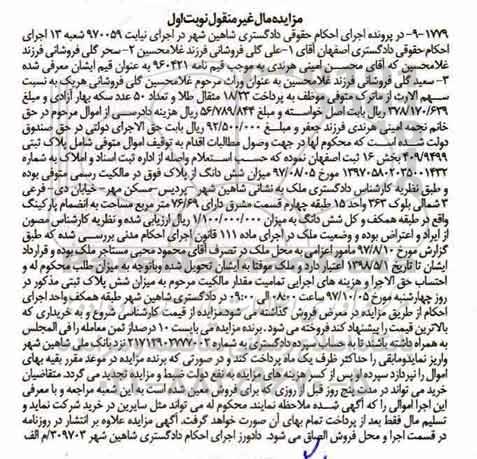 مزایده مال غیر منقول نوبت اول
۱۷۷۹-۹- در پرونده اجرای احکام حقوقی دادگستری شاهین شهر در اجرای نیابت ۹۷۰۰۵۹ شعبه ۱۳ اجرای
احکام حقوقی دادگستری اصفهان آقای ۱-علی گلی فروشانی فرزند غلامحسین ۲- سحر گلی فروشانی فرزند
غلامحسین که آقای محسن امینی هرندی به موجب قیم نامه ۹۶۰۴۲۱ به عنوان قیم ایشان معرفی شده
۳- سعید گلی فروشانی فرزند غلامحسین به عنوان وراث مرحوم غلامحسین گلی فروشانی هریک به نسبت
سهم الارث از ماترک متوفی موظف به پرداخت ۱۸/۳۳ مثقال طلا و تعداد ۵۰ عدد سکه بهار آزادی و مبلغ
۳۷۸/۱۷۰/۶۳۹ ریال بابت اصل خواسته و مبلغ ۵۶/۷۸۹/۸۴۴ ریال هزینه دادرسی از اموال مرحوم در حق
خانم نجمه امینی هرندی فرزند جعفر و مبلغ ۹۲/۵۰۰/۰۰۰ ریال بابت حق الاجرای دولتی در حق صندوق
دولت شده است که محکوم لها در جهت وصول مطالبات اقدام به توقیف اموال متوفی شامل پلاک ثبتی
۴۰۹/۹۴۹۹ بخش ۱۶ ثبت اصفهان نموده که حسب استعلام واصله از اداره ثبت اسناد و املاک به شماره
۱۳۹۷۰۵۸۰۲۰۳۵۰۰۱۴۳۲ مورخ ۹۷/۰۸/۰۵ میزان شش دانگ از پلاک فوق در مالکیت رسمی متوفی بوده
و طبق نظریه کارشناس دادگستری ملک به نشانی شاهین شهر - پردیس-مسکن مهر- خیابان دی- فرعی
۳ شمالی بلوک ۳۶۳ واحد ۱۵ طبقه چهارم قسمت مشرق دارای ۷۶/۶۹ متر مربع مساحت به انضمام پارکینگ
واقع در طبقه همکف و کل شش دانگ به میزان ۱/۱۰۰/۰۰۰/۰۰۰ ریال ارزیابی شده و نظریه کارشناس مصون
از ایراد و اعتراض بوده و وضعیت ملک در اجرای ماده ۱۱۱ قانون اجرای احکام مدنی بررسی شده که طبق
گزارش مورخ ۹۷/۸/۱۰ مامور اعزامی به محل ملک در تصرف آقای محمود محبی مستاجر ملک بوده و قرارداد
ایشان تا تاریخ ۱۳۹۸/۵/۱ اعتبار دارد و ملک موقتا به ایشان تحویل شده وباتوجه به میزان طلب محکوم له و
احتساب حق الاجرا و هزینه های اجرایی تمامیت مقدار مالکیت مرحوم به میزان شش پلاک ثبتی مذکور در
روز چهارشنبه مورخ ۹۷/۱۰/۰۵ ساعت ۰۸:۰۰ الی ۰۹:۰۰ در دادگستری شاهین شهر طبقه همکف واحد اجرای
احکام از طریق مزایده در معرض فروش گذاشته می شود،مزایده از قیمت کارشناسی شروع و به خریداری که
بالاترین قیمت را پیشنهاد کند فروخته می شود. برنده مزایده می بایست ۱۰ درصداز ثمن معامله را فی المجلس
به همراه داشته باشد تا به حساب سپرده دادگستری به شماره ۲۱۷۱۲۹۰۲۷۷۷۰۰۲ نزد بانک ملی شاهین شهر
واریز نمایدومابقی را حداکثر ظرف یک ماه پرداخت کند و در صورتی که برنده مزایده در موعد مقرر بقیه بهای
اموال را نپردازد سپرده او پس از کسر هزینه های مزایده به نفع دولت ضبط و مزایده تجدید می گردد. متقاضیان
خرید می تواند در مدت پنج روز قبل از روزی که برای فروش معین شده است به این شعبه مراجعه و با معرفی
این اجرا اموالی را که آگهی شده ملاحظه نمایند. محکوم له می تواند مثل سایرین در خرید شرکت نماید و
تسلیم مال فقط بعد از پرداخت تمام بهای آن صورت خواهد گرفت. آگهی مزایده علاوه بر انتشار در روزنامه
در قسمت اجرا و محل فروش الصاق می شود. دادورز اجرای احکام دادگستری شاهین شهر ۳۰۹۷۰۳/م الف